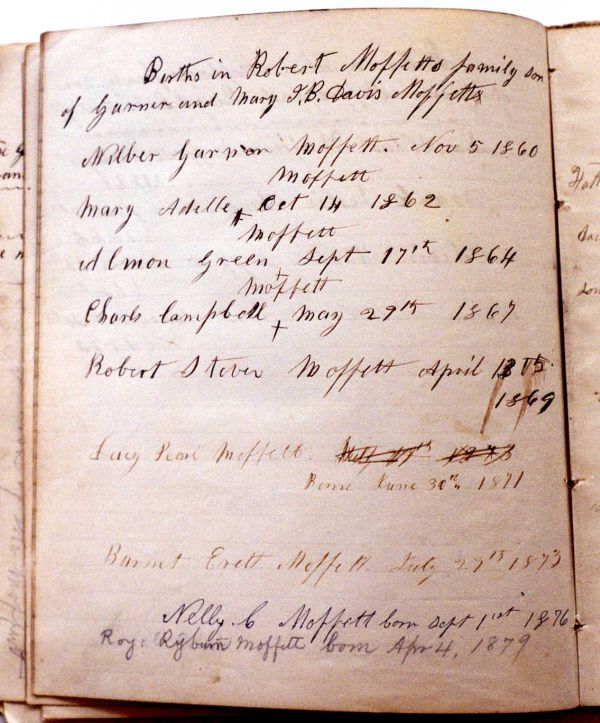 Births in Robert Moffetts family son
of Garner and Mary J.B. Davis Moffetts
Wilber Garner Moffett. Nov 5 1860
Moffett
Mary Adelle + Oct 14 1862
Moffett
Almon Green + Sept 17th 1864
Moffett
Charls Campbell + May 29th 1867
Robert Stever Moffett April 13th
1869
Lucy Pearl Moffett
Borne June 30th, 1871
Barnet Erett Moffett July 29th 1873
Nelly C Moffett born Sept 1st 1876
Roy Ryburn Moffett born Apr 4, 1879